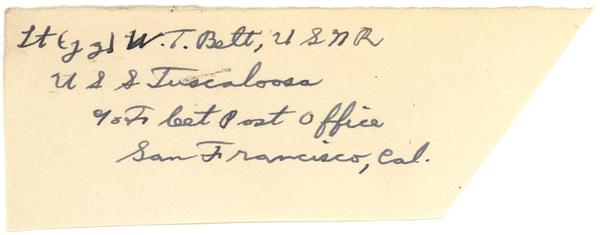 Lt (jg) W. T. Belt, USNR
USS Tuscaloosa
℅ Fleet Post Office
San Francisco, Cal.